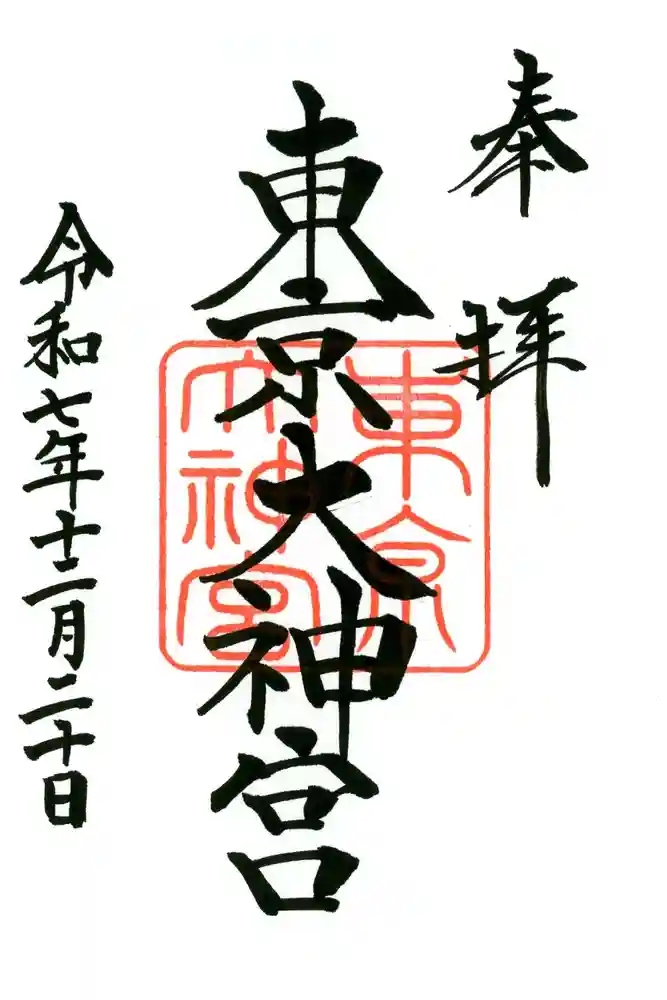 奉拝
東京大神宮
東京
大神宮
令和七年十二月二十日